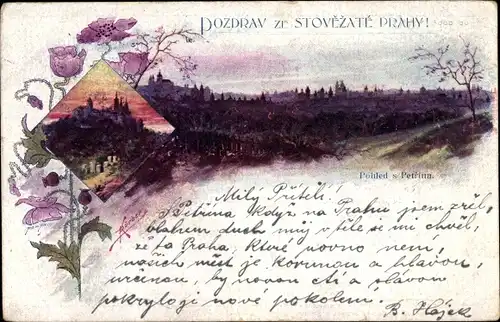 POZDRAV ZE STOVĚŽATÉ PRAHY!
Pohled s Petřína.
Milý Příteli!
S Petřína když na Prahu jsem zřel,
blahem duch můj v těle se mi chvěl,
že ta Praha, které rovno není,
našich měst je korunou a hlavou,
určenou, by novou ctí a slávou
pokrylo ji nové pokolení.
B. Hájek